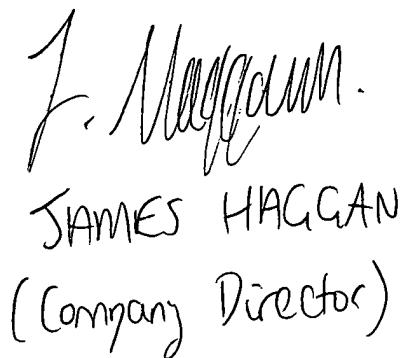 J. Haggan.
JAMES HAGGAN
(Company Director)